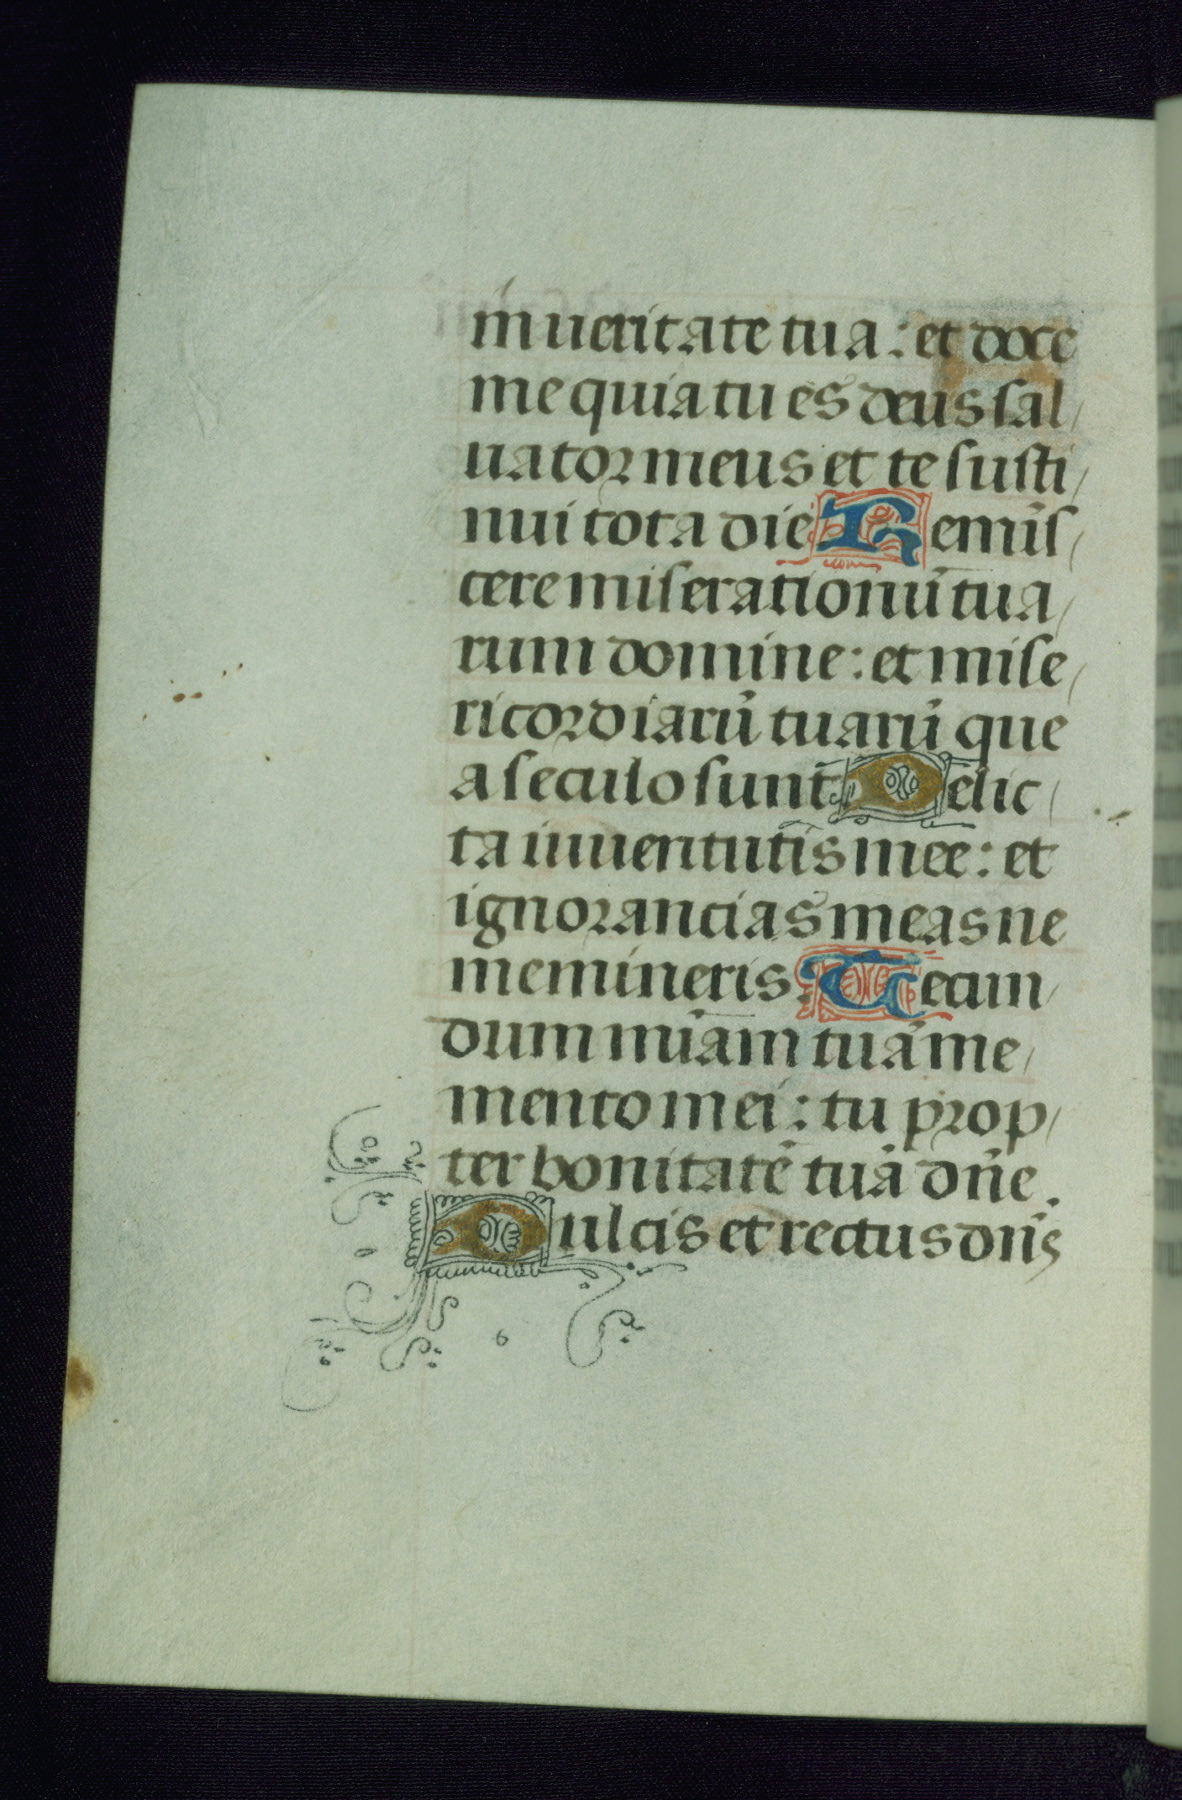 in ueritate tua: et doce
me quia tu es deus sal/
uator meus et te susti/
nui tota die Remis/
cere miserationū tua/
rum domine: et mise/
ricordiarū tuarū que
a seculo sunt Delic/
ta iuuentutis mee: et
ignorancias meas ne
memineris Secun/
dum miām tuā me/
mento mei: tu prop/
ter bonitatē tuā dn̄e.
Dulcis et rectus dn̄s